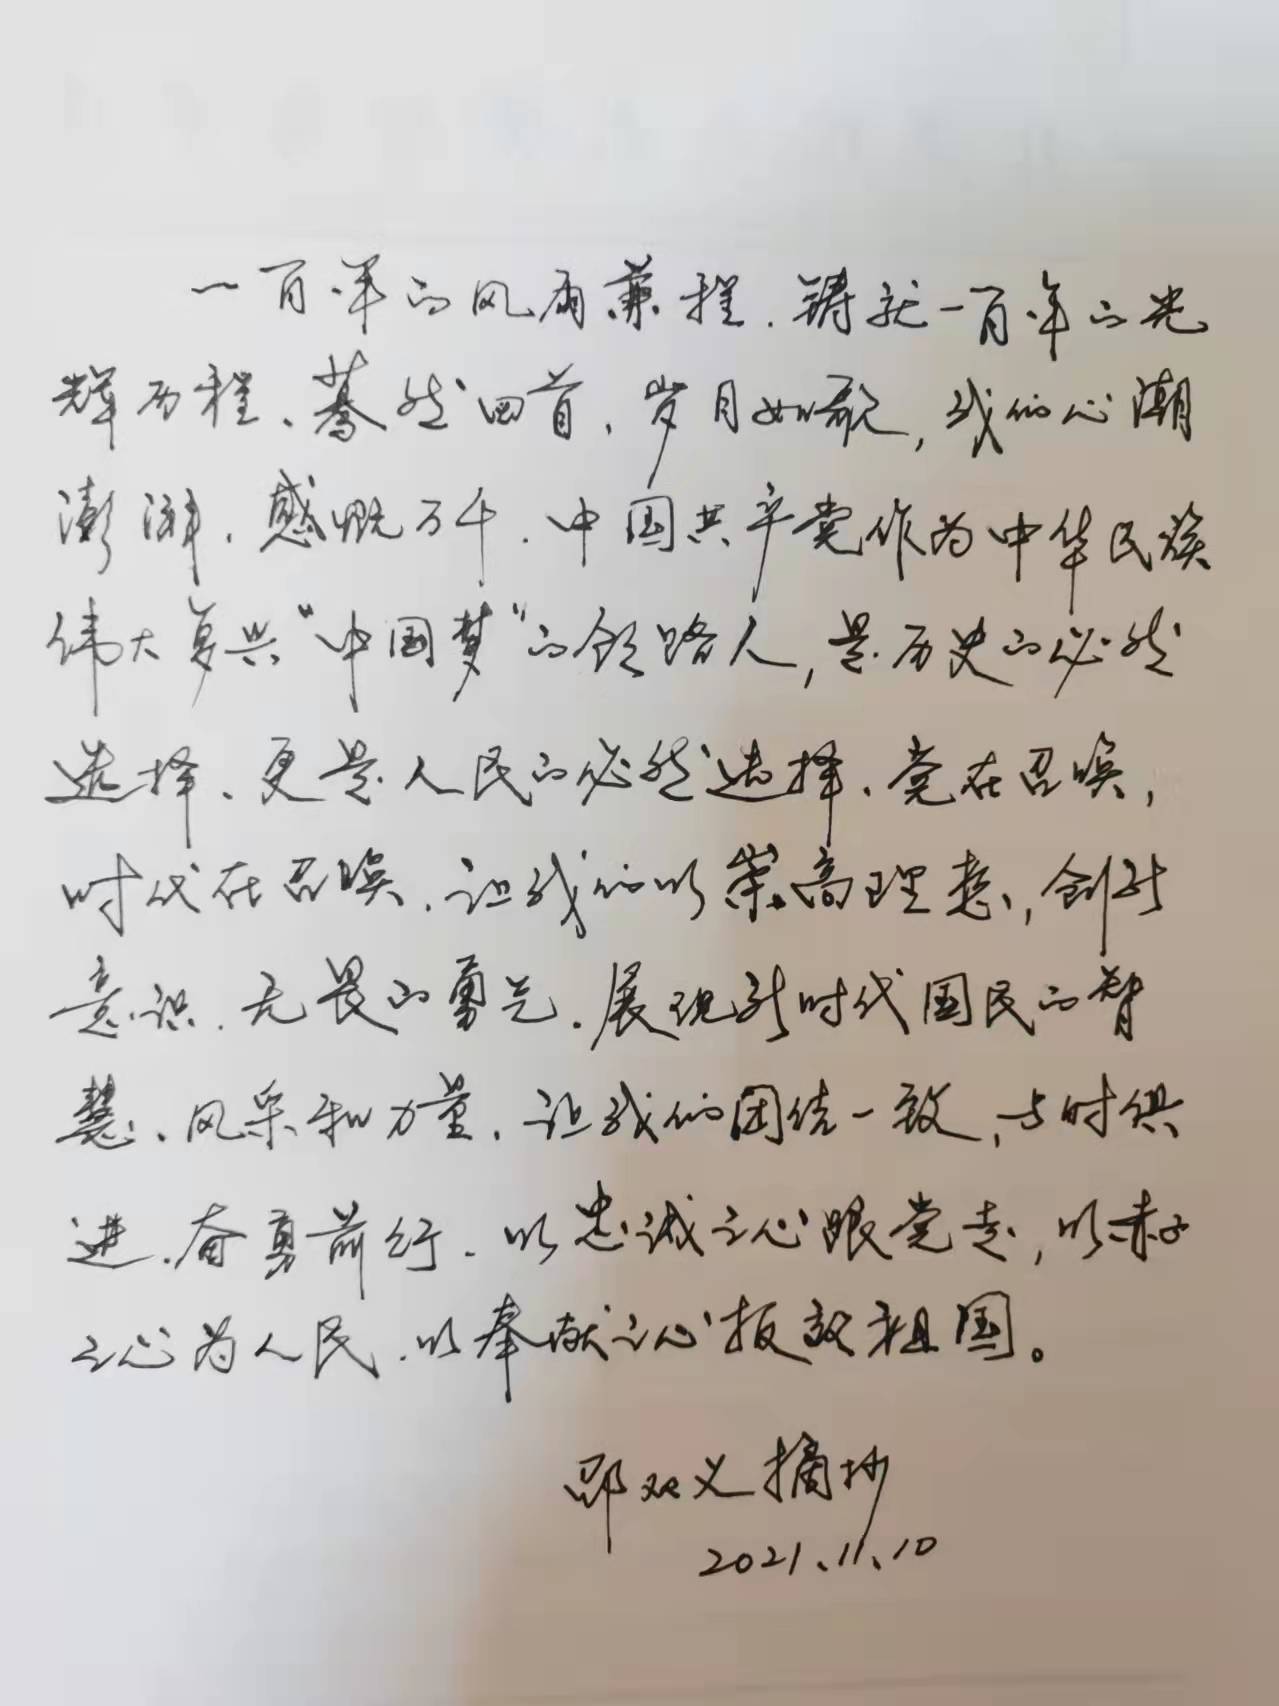 一百年的风雨兼程，铸就一百年的光
辉历程、蓦然回首，岁月如歌，我们心潮
澎湃，感慨万千，中国共产党作为中华民族
伟大复兴“中国梦”的领路人，是历史的必然
选择、更是人民的必然选择、党在召唤，
时代在召唤，让我们以崇高理想，创新
意识、无畏的勇气，展现新时代国民的智
慧、风采和力量，让我们团结一致，与时俱
进，奋勇前行，以忠诚之心跟党走，以赤子
之心为人民，以奉献之心报效祖国。
邵双义摘抄
2021、11、10